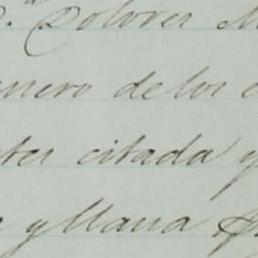 D.ª Dolores M
nero de los
tes citada y
y llana